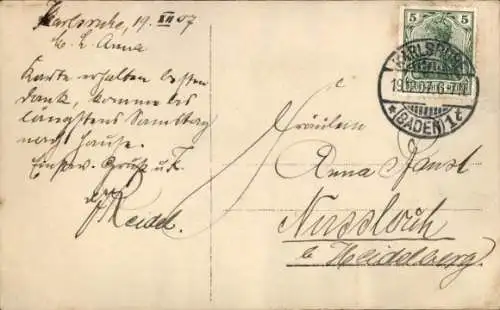 Karlsruhe, 19. XII 07
M. L. Anna
Karte erhalten besten
dank, komme bis
längstens Samstag
nach Hause.
Einstw. Gruß u. K.
Reidel.
5 5
KARLSRUHE
19.12.07.6-7N
* (BADEN) 1 c
Fräulein
Anna Faust
Nussloch
b Heidelberg.